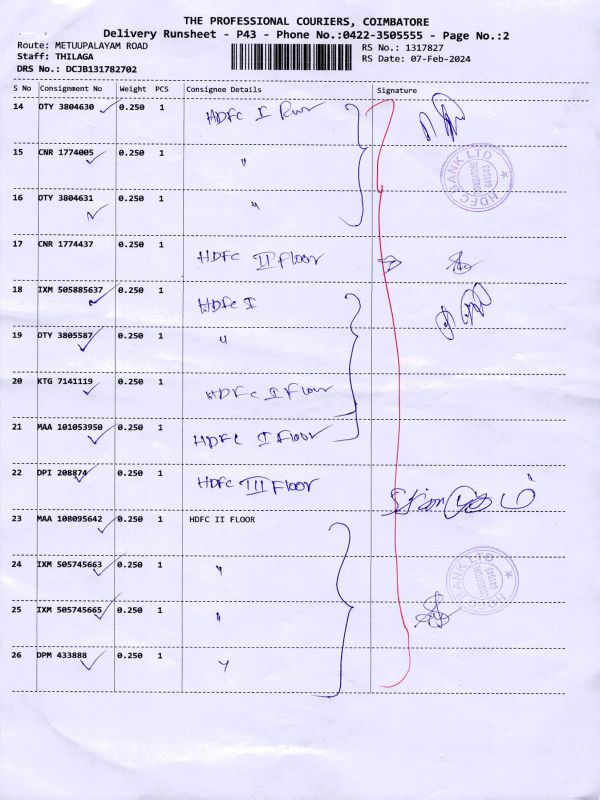 THE PROFESSIONAL COURIERS, COIMBATORE
Delivery Runsheet - P43 - Phone No.:0422-3505555 - Page No.:2
Route: METUUPALAYAM ROAD
Staff: THILAGA
DRS No.: DCJB131782702
RS No.: 1317827
RS Date: 07-Feb-2024
S No Consignment No Weight PCS Consignee Details Signature
14 OTY 3804630 0.250 1 HDFC I
15 CNR 1774005 0.250 1 "
16 OTY 3804631 0.250 1 "
HDFC BANK LTD
17 CNR 1774437 0.250 1 HDFC II Floor
18 IXM 505885637 0.250 1 HDFC I
19 OTY 3805587 0.250 1 "
20 KTG 7141119 0.250 1 HDFC I Floor
21 MAA 101053950 0.250 1 HDFC I Floor
22 DPI 208874 0.250 1 HDFC III Floor
23 MAA 108095642 0.250 1 HDFC II FLOOR
24 IXM 505745663 0.250 1 "
HDFC BANK LTD
25 IXM 505745665 0.250 1 "
26 DPM 433888 0.250 1 "